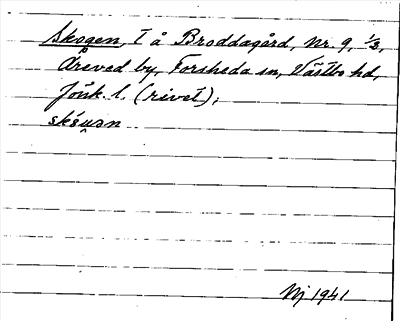 Skogen, T å Broddagård, nr. 9, 1/3,
Åreved by, Forsheda sn, Västbo hd,
Jönk. l. (rivet);
Nj 1941